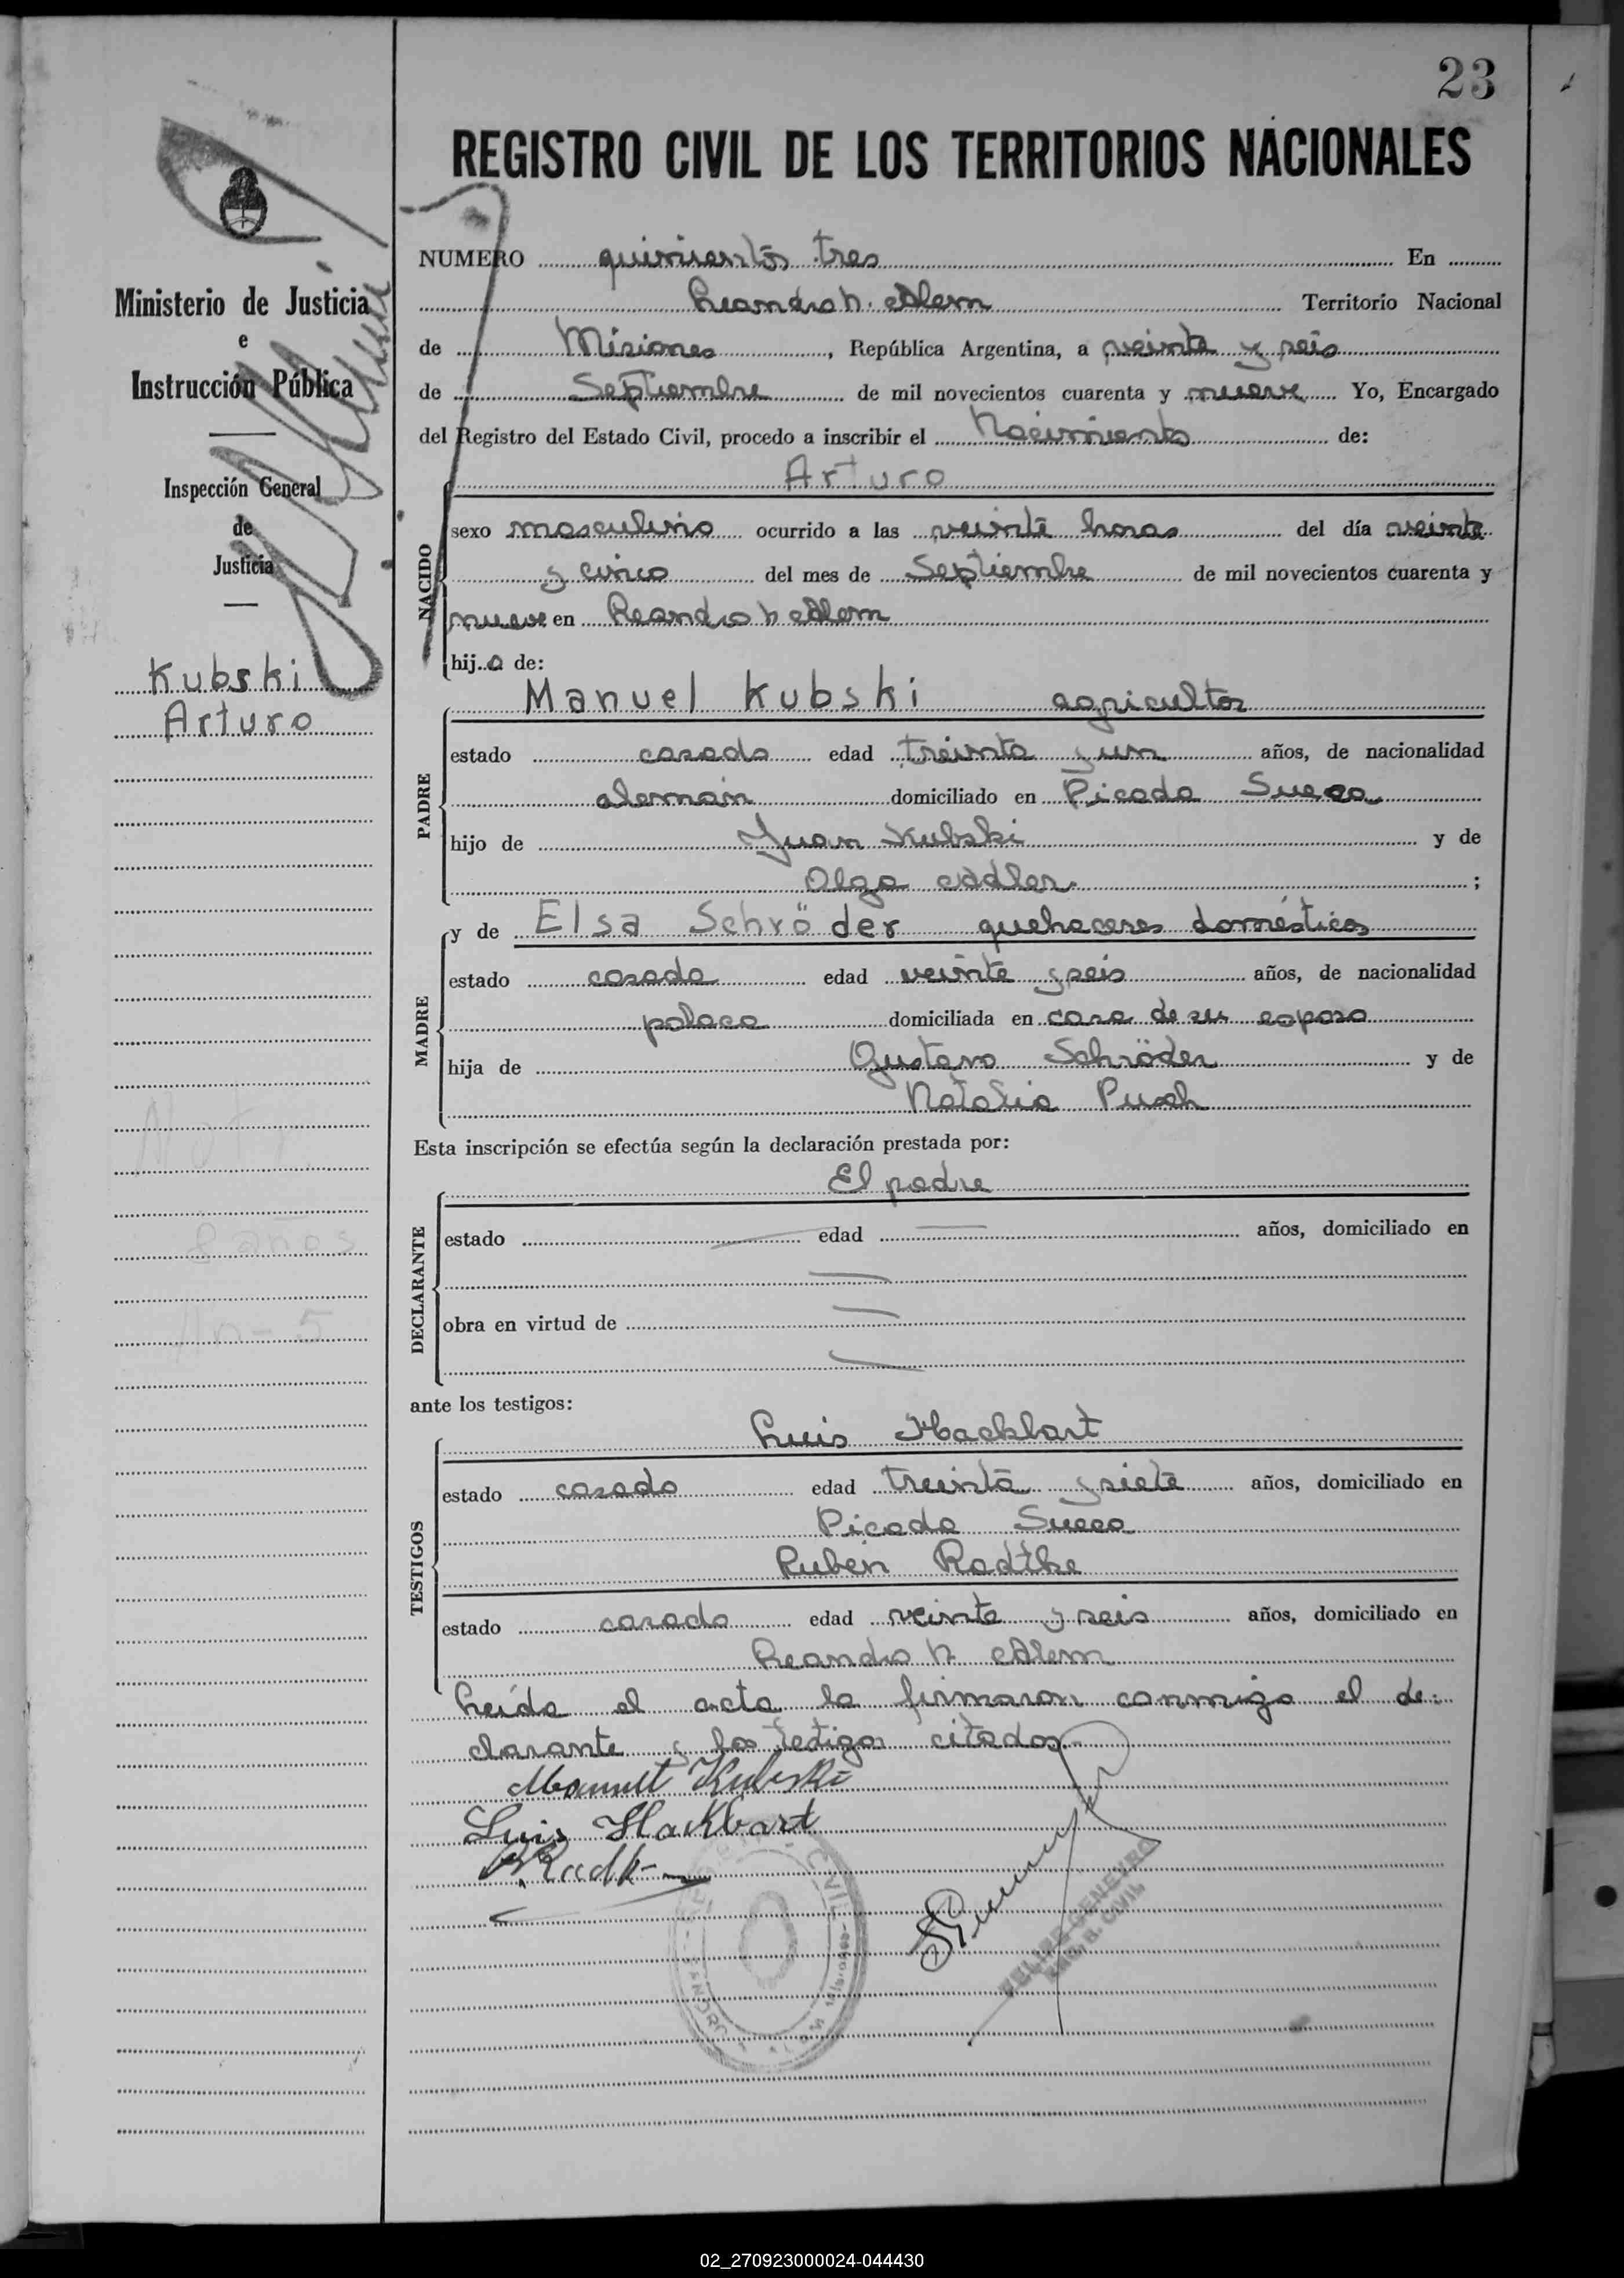 23
REGISTRO CIVIL DE LOS TERRITORIOS NACIONALES
Ministerio de Justicia
e
Instrucción Pública
Inspección General
de
Justicia
Kubski
Arturo
NUMERO quinientos tres En
Leandro N. Alem Territorio Nacional
de Misiones, República Argentina, a veinte y seis
de Septiembre de mil novecientos cuarenta y nueve Yo, Encargado
del Registro del Estado Civil, procedo a inscribir el Nacimiento de:
Arturo
NACIDO
sexo masculino ocurrido a las veinte horas del día veinte
y cinco del mes de Septiembre de mil novecientos cuarenta y
nueve en Leandro N Alem
hijo de:
Manuel Kubski agricultor
PADRE
estado casado edad treinta y un años, de nacionalidad
alemán domiciliado en Picada Sueca
hijo de Juan Kubski y de
Olga Adler ;
MADRE
y de Elsa Schröder quehaceres domésticos
estado casada edad veinte y seis años, de nacionalidad
polaca domiciliada en casa de su esposo
hija de Gustavo Schröder y de
Natalia Pusch
Esta inscripción se efectúa según la declaración prestada por:
El padre
DECLARANTE
estado edad años, domiciliado en
obra en virtud de
8 años
ante los testigos:
TESTIGOS
Luis Hackbart
estado casado edad treinta y siete años, domiciliado en
Picada Sueca
Ruben Radtke
estado casado edad veinte y seis años, domiciliado en
Leandro N Alem
Leída el acta la firmaron conmigo el de:
clarante y los testigos citados.-
Manuel Kubski
Luis Hackbart
R Radtke
CIVIL
FELIPE GENEYRO
ENC. R. CIVIL
02_270923000024-044430